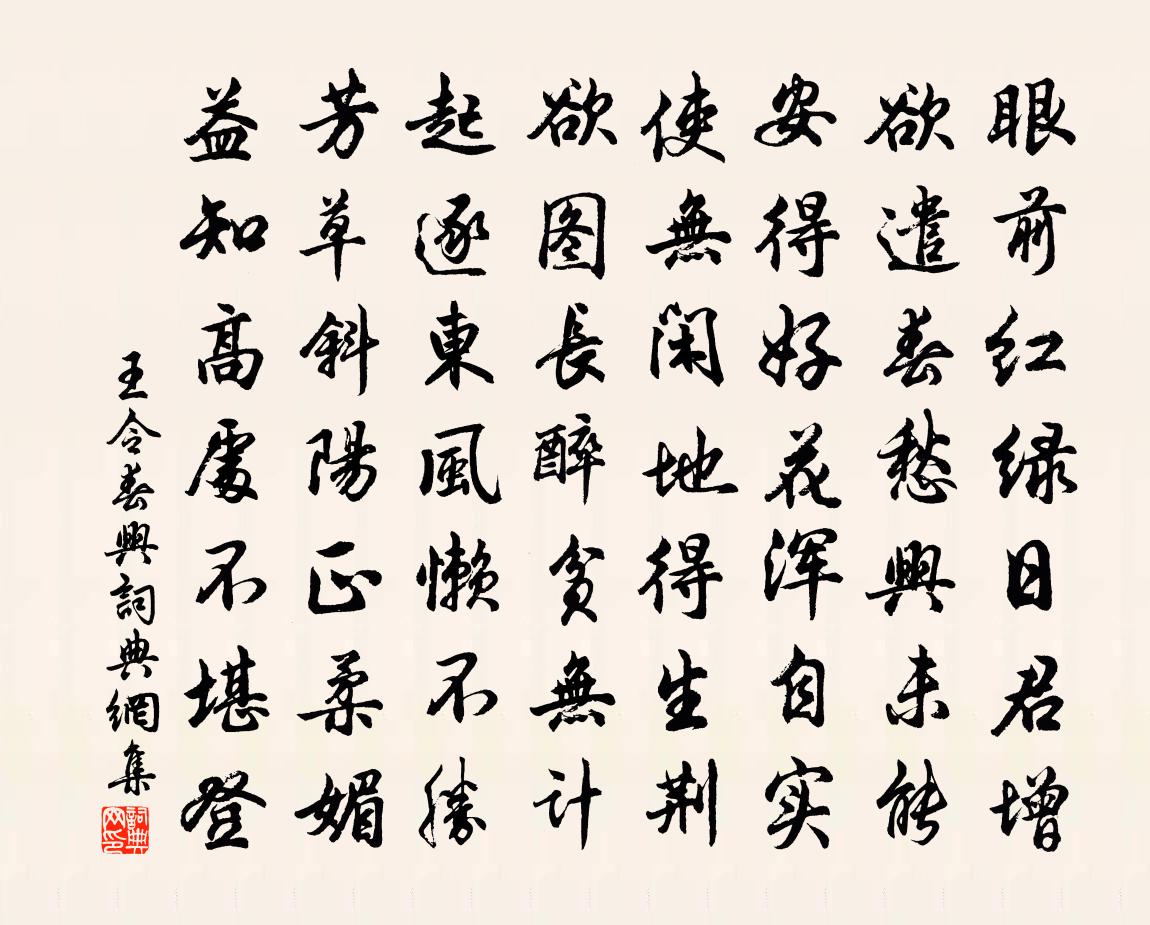 眼前红绿日君增
欲遣春愁興未能
安得好花浑自实
使無闲地得生荆
欲图長醉貧無计
起逐東風懒不勝
芳草斜陽正柔媚
益知高處不堪登
王令春興詞典網集
詞典网印